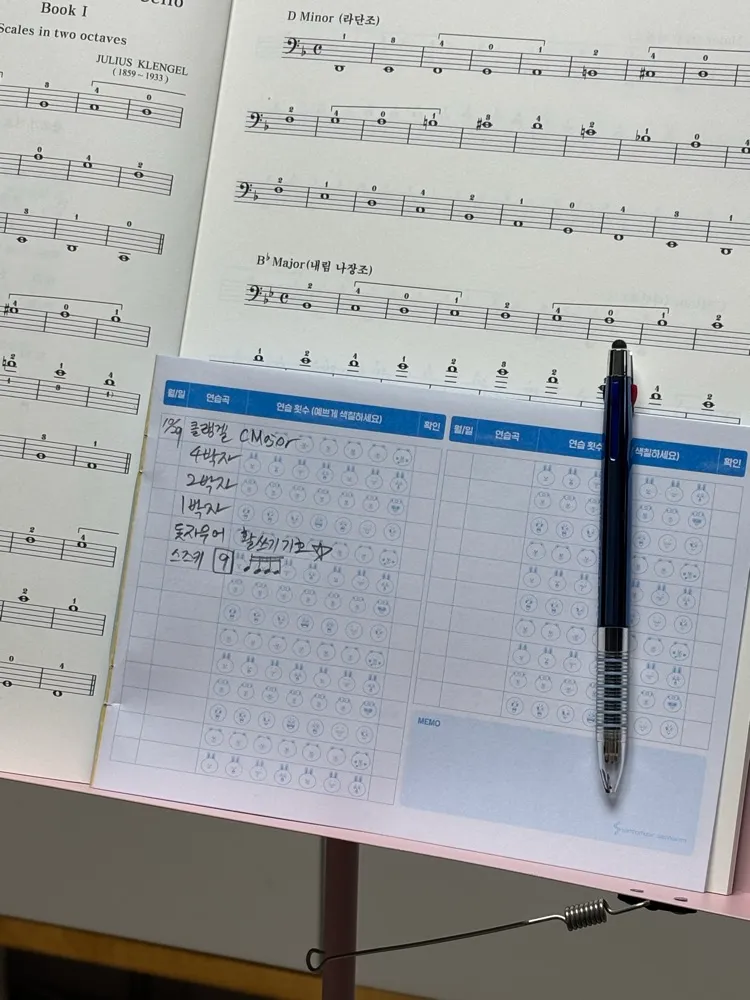 Book I
Scales in two octaves
JULIUS KLENGEL
(1859~1933)
D Minor (라단조)
B♭ Major (내림 나장조)
월/일 연습곡 연습 횟수 (예쁘게 색칠하세요) 확인
월/일 연습곡 연습 횟수 색칠하세요) 확인
12/9 클랭겔 CMajor
4박자
2박자
1박자
돗자우어 활쓰기 기호 ☆
스즈키 9
MEMO